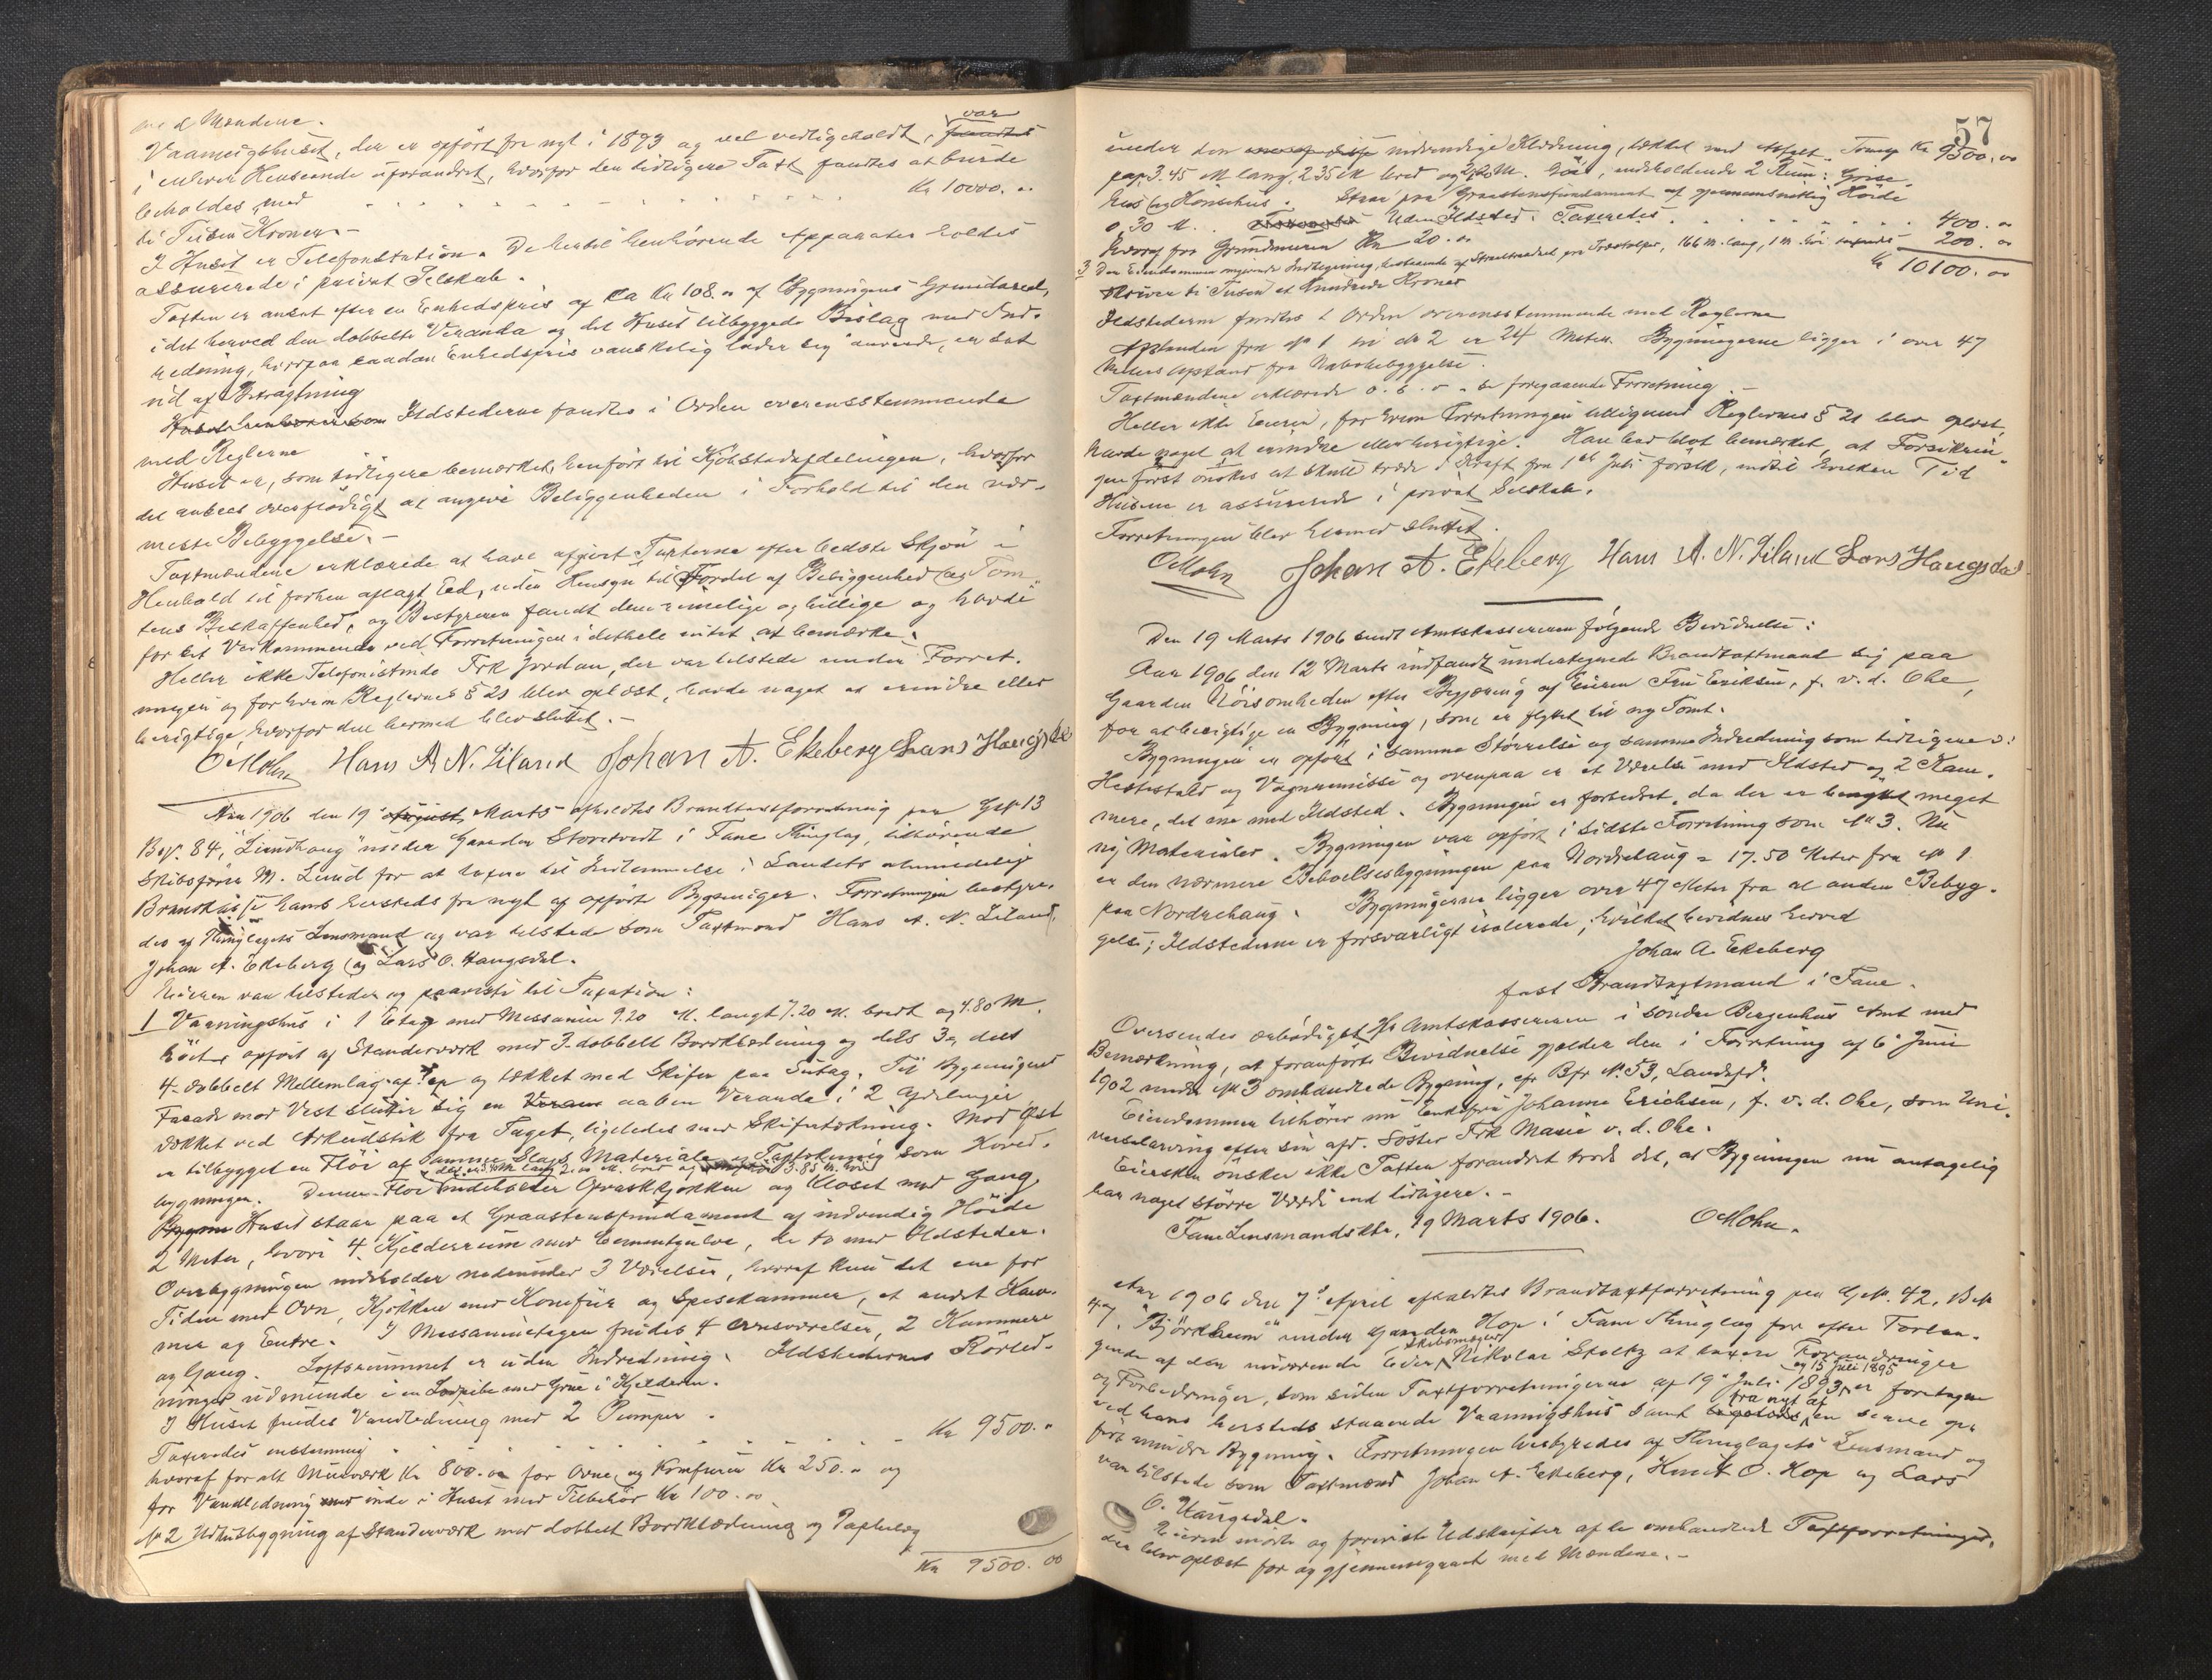 med Mændene.
Vaaningshuset, der er opført fra nyt i 1893 og vel vedligeholdt, var
i enhver Henseende uforandret, hvorfor den tidligere Taxt fandtes at burde
beholdes med Kr 10000. "
ti Tusen Kroner.-
I Huset er Telefonstation. De hertil henhørende Apparater holdes
assurerede i privat Selskab.
Taxten er ansat efter en Enhedspris af ca Kr 108. " af Bygningens Grundareal,
idet herved den dobbelte Veranda og det Huset tilbyggede Bislag med Ind-
redning, hvorpaa saadan Enhedspris vanskelig lader sig anvende, er sat
ud af Betragtning
Ildstederne fandtes i Orden overensstemmende
med Reglerne
Huset er, som tidligere bemærket, henført til Kjøbstadafdelingen, hvorfor
det ansees overflødigt at angive Beliggenheden i Forhold til den nær-
meste Bebyggelse.-
Taxtmændene erklærede at have afgivet Taxterne efter bedste Skjøn i
Henhold til forhen aflagt Ed, uden Hensyn til Fordel af Beliggenhed og Tom-
tens Beskaffenhed, og Bestyreren fandt dem rimelige og billige og havde
for sit Vedkommende ved Forretningen i dethele intet at bemærke.
Heller ikke Telefonistinde Frk Jordan, der var tilstede under Forret-
ningen og for hvem Reglernes § 21 blev oplæst, havde noget at erindre eller
berigtige, hvorfor den hermed blev sluttet.-
OMohn Hans A. N. Liland Johan A. Ekeberg Lars Haugsdal
Aar 1906 den 19 Marts afholdtes Brandtaxtforretning paa G.No 13
B.No. 84, "Lundhaug" under Gaarden Storetvedt i Fane Thinglag, tilhørende
Skibsfører M. Lund for at taxere til Indlemmelse i Landets almindelige
Brandkasse hans hersteds fra nyt af opførte Bygninger. Forretningen bestyre-
des af Thinglagets Lensmand og var tilstede som Taxtmænd Hans A. N. Liland,
Johan A. Ekeberg og Lars O. Haugsdal.
Eieren var tilstede og paaviste til Taxation:
1 Vaaningshus i 1 Etage med Messanin 9.20 M. langt 7.20 M. bredt og 4.80 M.
høit, opført af Standerværk med 3-dobbelt Bordklædning og dels 3 a dels
4-dobbelt Mellemlag af Pap og tækket med Skifer paa Sutag. Til Bygningens
Facade mod Vest slutter sig en aaben Veranda i 2 Afdelinger
dækket ved Arkeudstik fra Taget, ligeledes med Skifertækning. Mod Øst
er tilbygget en Fløi af samme Slags Materiale og Tagtækning som Hoved-
bygningen. Denne Fløi indeholder Graskjøkken og Kloset med Gang
Huset staar paa et Graastensfundament af indvendig Høide
2 Meter, hvori 4 Kjelderrum med Cementgulve, de to med Ildsteder.
Overbygningen indeholder nedenunder 3 Værelser, hvoraf kun det ene for
Tiden med Ovn, Kjøkken med Komfur og Spisekammer, et andet Kam-
mer og Entre. I Messaninetagen findes 4 Værelser, 2 Kammere
og Gang. Loftsrummet er uden Indredning. Ildstedernes Rørled-
ninger udmunde i en Lovpibe med Grue i Kjelderen.
I Huset findes Vandledning med 2 Pumper.
Taxeredes enstemmig Kr 9500. "
hvoraf for alt Murværk Kr 800. oo for Ovne og Komfurer Kr 250. " og
for Vandledning inde i Huset med Tilbehør Kr 100. oo
No 2 Udhusbygning af Standerværk med dobbelt Bordklædning og Paplæg
Kr 9500. 00
57
under den indvendige Klædning, tækket med Asfalt- Transp Kr 9500. oo
pap, 3.45 M lang, 2.35 M bred og 2.20 M. høi, indeholdende 2 Rum:
hus og Hønsehus. Staar paa Graastensfundament af gjennemsnitlig Høide
0,30 M. Uden Ildsted. Taxeredes 400. "
Hvoraf for Grundmuren Kr 20. oo
3 Den Eiendommen omgivende Indhegning, bestaaende af Staaltraadnet paa Træstolper, 166 M. lang, 1 M. høi taxeredes 200. oo
Kr 10100. oo
Skriver ti Tusen et Hundrede Kroner
Ildstederne fandtes i Orden overensstemmende med Reglerne
Afstanden fra No 1 til do 2 er 24 Meter. Bygningerne ligger i over 47
Meters Afstand fra Nabobebyggelse.
Taxtmændene erklærede o. s. v. - se foregaaende Forretning.-
Heller ikke Eieren, for hvem Forretningen tilligemed Reglernes § 21 blev oplæst,
havde noget at erindre eller berigtige. Han har blot bemærket, at Forsikrin-
gen først ønskes at skulle træde i Kraft fra 1st Juli førstk, indtil hvilken Tid
Husene er assurerede i privat Selskab.
Forretningen blev hermed sluttet.
OMohn Johan A. Ekeberg Hans A. N. Liland Lars Haugsdal
Den 19 Marts 1906 sendt Amtskassereren følgende Bevidnelse:
Aar 1906 den 12 Marts indfandt undertegnede Brandtaxtmand sig paa
Gaarden efter Begjæring af Eieren Fru Eriksen, f. v. d. Ohe,
for at besigtige en Bygning, som er flyttet til ny Tomt.
Bygningen er opført i samme Størrelse og samme Indredning som tidligere o:
Hestestald og Vognremisse og ovenpaa er et Værelse med Ildsted og 2 Kam-
mere, det ene med Ildsted. Bygningen er forbedret, da der er benyttet meget
ny Materialer. Bygningen var opført i sidste Forretning som No 3. Nu
er den nærmere Beboelsesbygningen paa Nordrehaug = 17.50 Meter fra No 1
paa Nordrehaug. Bygningerne ligger over 47 Meter fra al anden Bebyg-
gelse; Ildstederne er forsvarligt isolerede, hvilket bevidnes herved
Johan A. Ekeberg
fast Brandtaxtmand i Fane.
Oversendes ærbødigst Hr Amtskassereren i søndre Bergenhus Amt med
Bemærkning, at foranførte Bevidnelse gjælder den i Forretning af 6 Juni
1902 under No 3 omhandlede Bygning, cfr Bfr No. 53, Landsfd.
Eiendommen tilhører nu Enkefru Johanne Erichsen, f. v. d. Ohe, som Uni-
versalarving efter sin afd. Søster Frk Marie v. d. Ohe.
Eiersken ønsker ikke Taxten forandret trods det, at Bygningen nu antagelig
har noget større Værdi end tidligere.-
Fane Lensmandsktr, 19 Marts 1906. OMohn.
Aar 1906 den 7de April afholdtes Brandtaxtforretning paa G.No. 42, B.No
47, "Bjørkheim" under Gaarden Hop i Fane Thinglag for efter Forlan-
gende af den nuværende Eier, Skibsmægler Nikolai Stoltz at taxere Forandringer
og Forbedringer, som siden Taxtforretningerne af 19 Juli 1893 og 15 Juli 1895 er foretagne
ved hans hersteds staaende Vaaningshus samt en senere fra nyt af op-
ført mindre Bygning. Forretningen bestyredes af Thinglagets Lensmand og
var tilstede som Taxtmænd Johan A. Ekeberg, Knut O. Hop og Lars
O. Haugsdal.
Eieren mødte og foreviste Udskrifter af de omhandlede Taxtforretninger,
der blev oplæst for og gjennemgaaet med Mændene.-